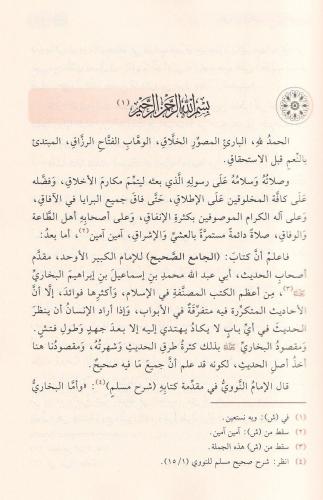 بسم الله الرحمن الرحيم (١)
الحمدُ للهِ، البارئِ المصوِّرِ الخلَّاقِ، الوهَّابِ الفتَّاحِ الرزَّاقِ، المبتدئِ
بالنِّعمِ قبلَ الاستحقاقِ.
وصلاتُهُ وسلامُهُ على رسولِهِ الَّذي بعثَه ليتمِّمَ مكارمَ الأخلاقِ، وفضَّله
على كافَّةِ المخلوقين على الإطلاقِ، حتَّى فاقَ جميعَ البرايا في الآفاقِ،
وعلى آلهِ الكرامِ الموصوفين بكثرةِ الإنفاقِ، وعلى أصحابِهِ أهلِ الطَّاعةِ
والوفاقِ، صلاةً دائمةً مستمرَّةً بالعشيِّ والإشراقِ، آمين آمين(٢)، أما بعدُ:
فاعلمْ أنَّ كتابَ: (الجامع الصَّحيح) للإمام الكبير الأوحد، مقدَّم
أصحاب الحديث، أبي عبد الله محمد بن إسماعيل بن إبراهيم البخاري
(٣)، مِن أعظم الكتب المصنَّفة في الإسلام، وأكثرِها فوائدَ، إلَّا أنَّ
الأحاديثَ المتكرِّرة فيه متفرِّقةٌ في الأبواب، وإذا أراد الإنسانُ أن ينظرَ
الحديث في أيِّ بابٍ لا يكادُ يهتدي إليه إلا بعد جهدٍ وطولِ فتشٍ.
ومقصودُ البخاريِّ بذلك كثرةُ طرقِ الحديثِ وشهرتُهُ، ومقصودُنا هنا
أخذُ أصلِ الحديثِ، لكونِه قد علم أنَّ جميعَ ما فيه صحيحٌ.
قال الإمامُ النَّوويُّ في مقدِّمة كتابِهِ (شرح مسلم)(٤): «وأمَّا البخاريُّ
(١) في (ش): وبه نستعين.
(٢) سقط من (ش): آمين آمين.
(٣) سقط من (ش) هذه الجملة.
(٤) انظر: شرح صحيح مسلم للنووي (١/ ١٥)